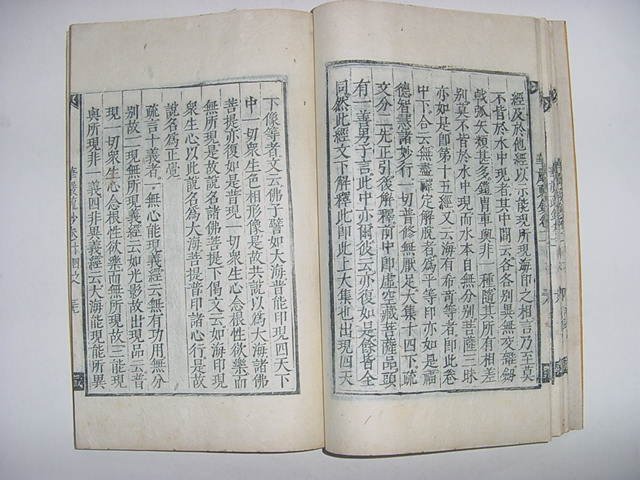 經及於他經以示能現所現海印之相言乃至莫
不皆於水中現者其中間云各各別異無交雜劔
戟弧矢類甚多鎧冑車輿非一種隨其所有相差
別莫不皆於水中現而水本自無分別菩薩三昧
亦如是即第十五經又云海有希竒等者即此卷
中下合云無盡禪定解脫者為平等印亦如是福
德智慧諸妙行一切普修無厭足大集十四下疏
文分二先正引後解釋前中即虛空藏菩薩品頭
有一善男子言此中亦爾彼云亦復如是餘皆全
同然此經文下解釋此即此上大集也出現四天
下像等者文云佛子譬如大海普能印現四天下
中一切衆生色相形像是故共說以為大海諸佛
菩提亦復如是普現一切衆生心念根性欲樂而
無所現是故說名諸佛菩提下偈文云如海印現
衆生心以此說名為大海菩提普印諸心行是故
說名為正覺
疏言十義者一無心能現義經云無有功用無分
別故二現無所現義經云如光影故出現品云普
現一切衆生心念根性欲樂而無所現故三能現
與所現非一義四非異義經云大海能現能所異